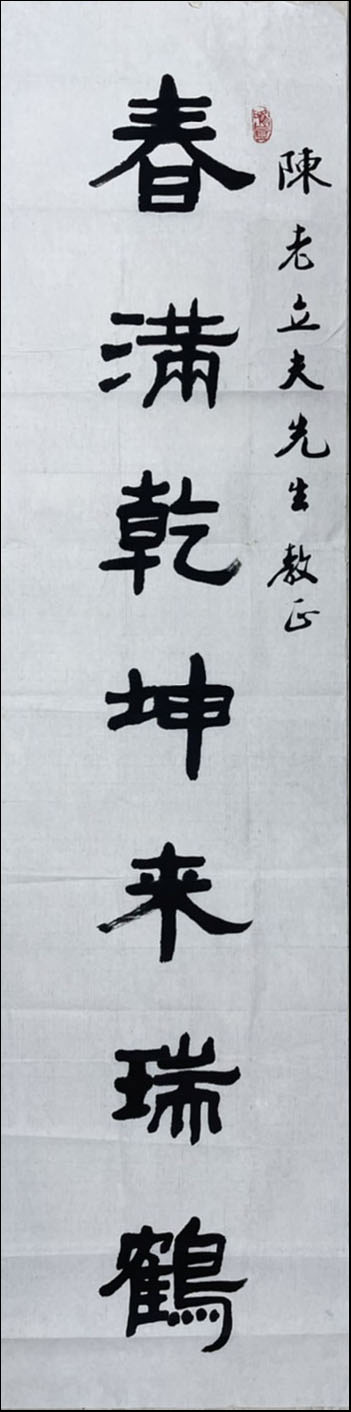 陳老立夫先生教正
春满乾坤来瑞鶴